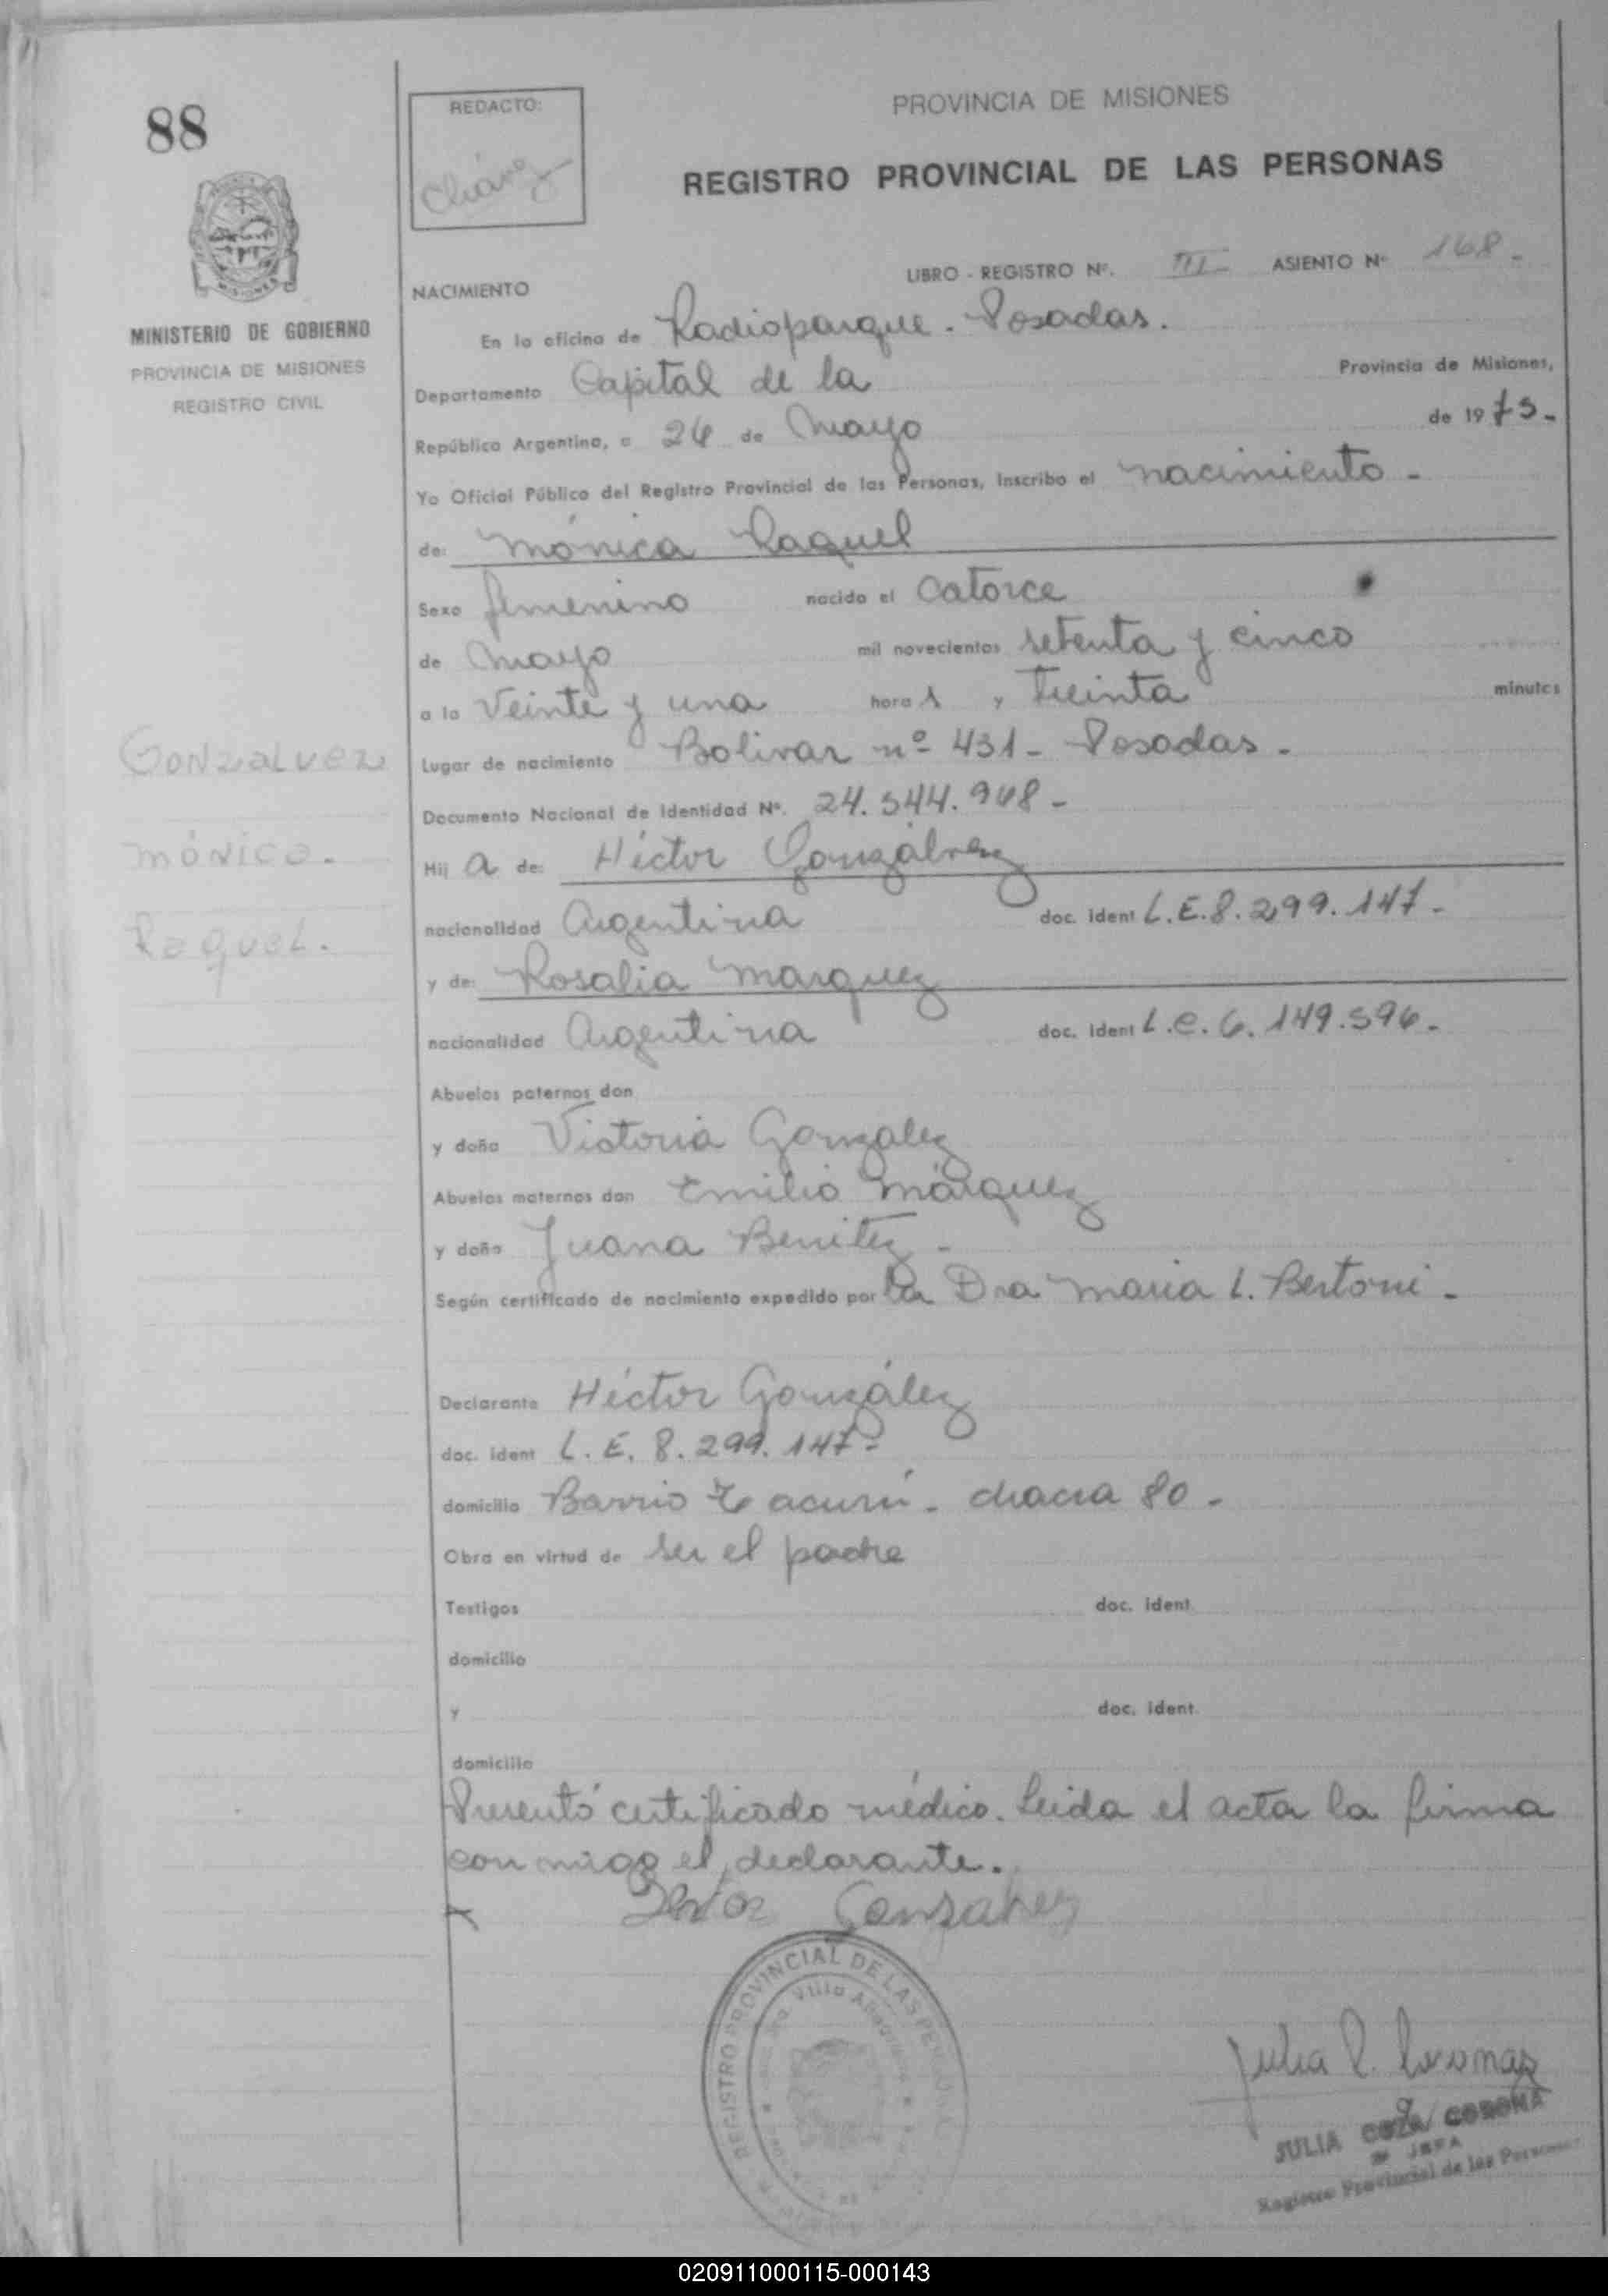 88
REDACTO:
Chávez
PROVINCIA DE MISIONES
REGISTRO PROVINCIAL DE LAS PERSONAS
MISIONES
MINISTERIO DE GOBIERNO
PROVINCIA DE MISIONES
REGISTRO CIVIL
LIBRO - REGISTRO Nº. III - ASIENTO Nº 168 -
NACIMIENTO
En la oficina de Radioparque. Posadas.
Departamento Capital de la Provincia de Misiones,
República Argentina, a 26 de Mayo de 1975 -
Yo Oficial Público del Registro Provincial de las Personas, Inscribo el nacimiento -
de: Mónica Raquel
Sexo femenino nacido el Catorce
de Mayo mil novecientos setenta y cinco
a la Veinte y una hora s y Treinta minutos
Lugar de nacimiento Bolivar nº 431 - Posadas -
Documento Nacional de Identidad Nº. 24.544.968 -
Hij a de: Héctor Gonzálvez
nacionalidad Argentina doc. ident L.E. 8.299.147 -
y de: Rosalia Marquez
nacionalidad Argentina doc. ident L.C. 6.149.596 -
Gonzalvez
Mónica.
Raquel.
Abuelos paternos don
y doña Victoria Gonzalez
Abuelos maternos don Emilio Márquez
y doña Juana Benitez -
Según certificado de nacimiento expedido por La Dra Maria L. Bertoni -
Declarante Héctor González
doc. ident L. E. 8.299.147 -
domicilio Barrio Tacurú - chacra 80 -
Obra en virtud de ser el padre
Testigos doc. ident.
domicilio
y doc. ident.
domicilio
Presentó certificado médico. Leida el acta la firma
con migo el declarante.
Gonzalvez
REGISTRO PROVINCIAL DE LAS PERSONAS
Julia
JULIA CORONA
JEFA
Registro Provincial de las Personas
020911000115-000143